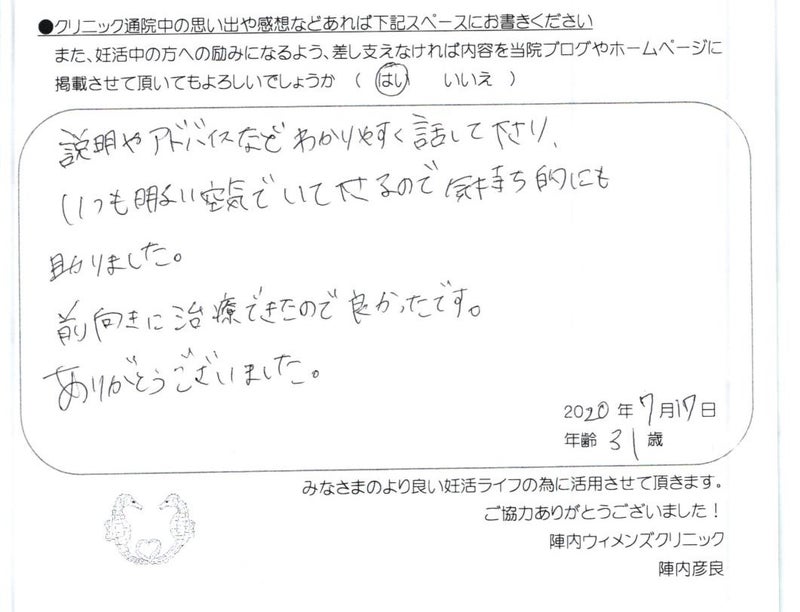 ●クリニック通院中の思い出や感想などあれば下記スペースにお書きください
また、妊活中の方への励みになるよう、差し支えなければ内容を当院ブログやホームページに
掲載させて頂いてもよろしいでしょうか （ はい いいえ ）
説明やアドバイスなどわかりやすく話して下さり、
いつも明るい空気でいて下さるので気持ち的にも
助かりました。
前向きに治療できたので良かったです。
ありがとうございました。
2020年7月17日
年齢 31歳
みなさまのより良い妊活ライフの為に活用させて頂きます。
ご協力ありがとうございました！
陣内ウィメンズクリニック
陣内彦良